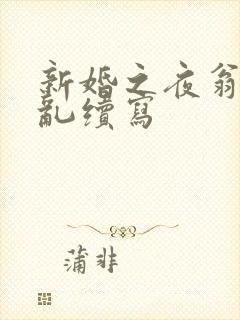 新婚之夜翁
亂續寫
蒲非